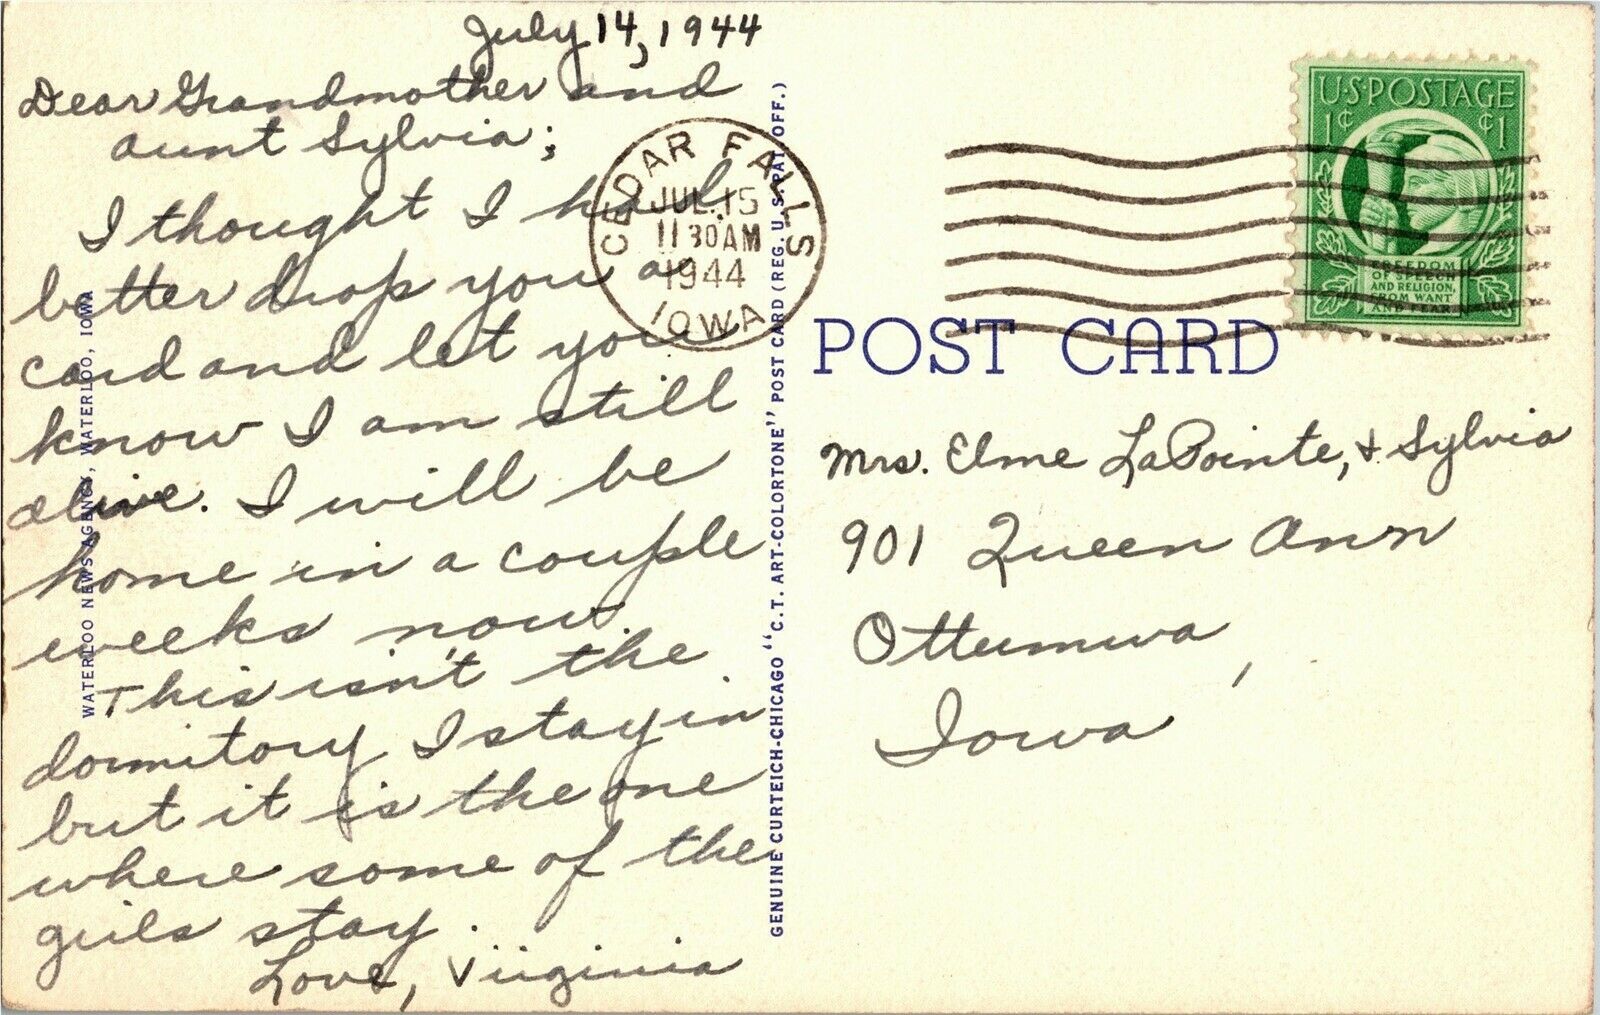 July 14, 1944
Dear Grandmother and
Aunt Sylvia;
I thought I had
better drop you a
card and let you
know I am still
alive. I will be
home in a couple
weeks now.
This isn't the
dormitory I stay in
but it is the one
where some of the
girls stay.
Love, Virginia
WATERLOO NEWS AGENCY, WATERLOO, IOWA
GENUINE CURTEICH-CHICAGO "C.T. ART-COLORTONE" POST CARD (REG. U.S. PAT. OFF.)
CEDAR FALLS
JUL 15
11 30 AM
1944
IOWA
U·S·POSTAGE
1¢ ¢1
FREEDOM
OF SPEECH
AND RELIGION,
FROM WANT
AND FEAR
POST CARD
Mrs. Elme LaPointe, & Sylvia
901 Queen Ann
Ottumwa,
Iowa